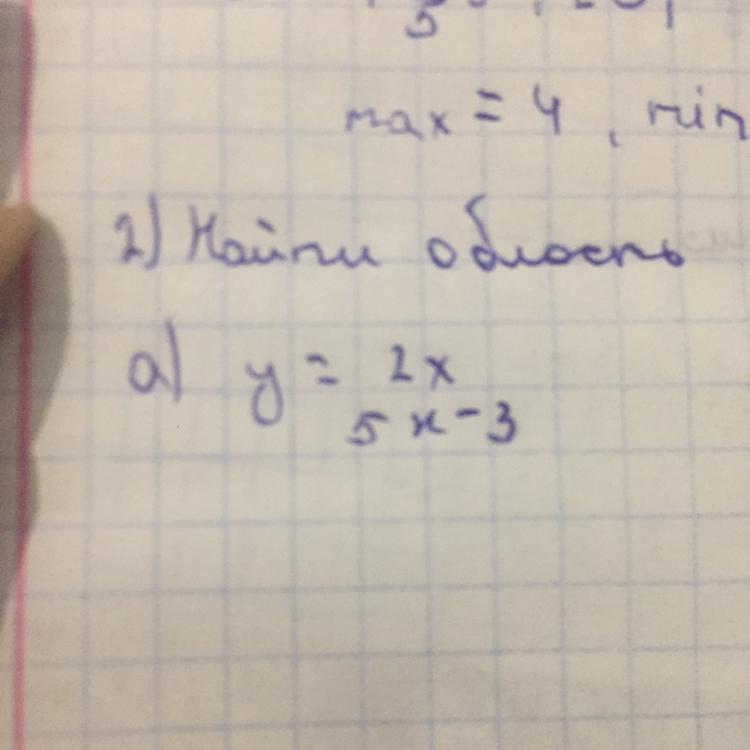 max = 4 , min
2) Найти область
а) y = 2x
5x-3